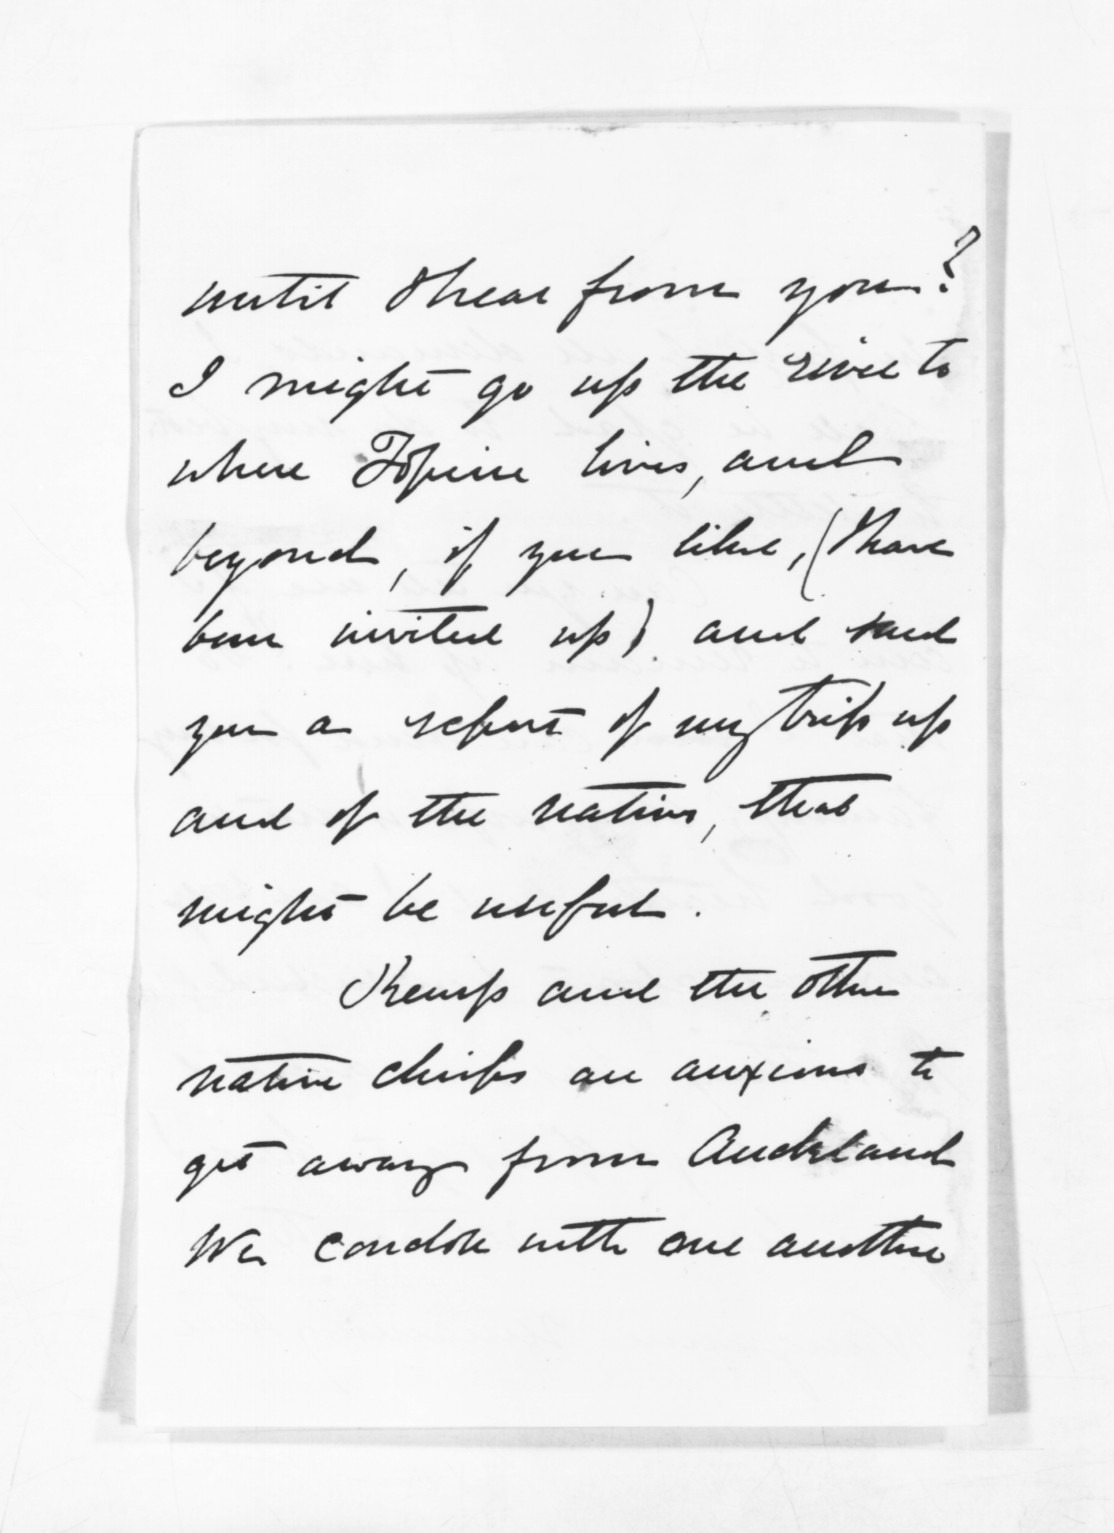 until I hear from you?
I might go up the river to
where Topine lives, and
beyond, if you like, (I have
been invited up) and send
you a report of my trip up
and of the natives, that
might be useful.
Kemp and the other
native chiefs are anxious to
get away from Auckland
We condole with one another